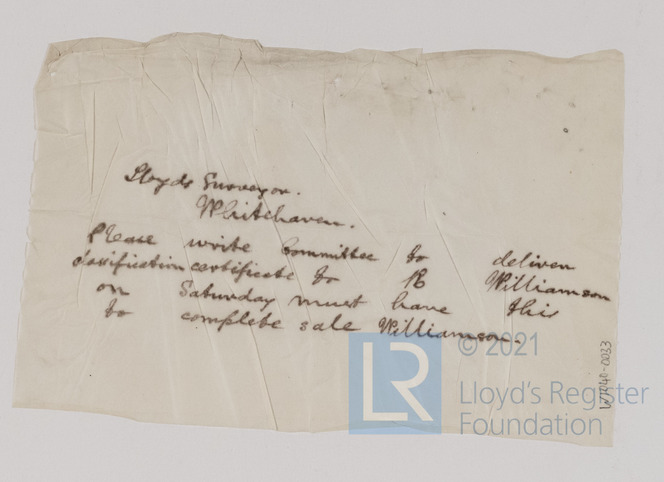 Lloyds Surveyor.
Whitehaven.
Please write Committee to deliver
classification certificate to R Williamson
on Saturday must have this
to complete sale Williamson.
© 2021
LR
Lloyd's Register
Foundation